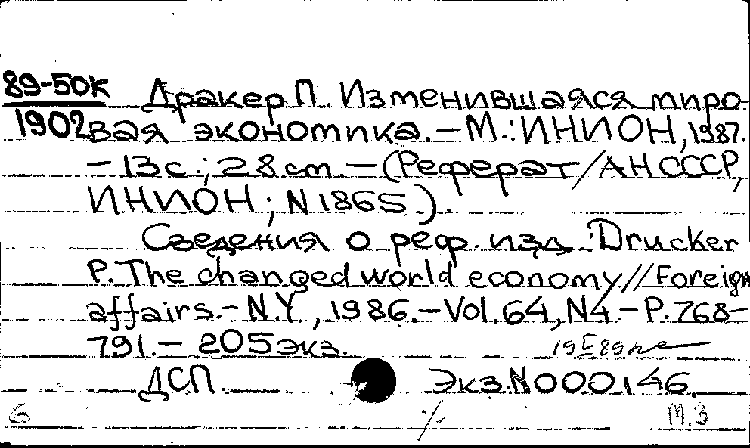 89-50к Дракер П. Изменившаяся миро-
1902 вая экономика.-М.:ИНИОН,1987.
-13с.;28 cm.-(Реферат/АН СССР,
ИНИОН; N 1865).
Сведения о реф. изд.: Drucker
P. The changed world economy//Foreign
affairs.-N.Y., 1986.-Vol.64,N4.-P.768-
791.- 205экз.
ДСП. Экз.N000146.
6 М.З